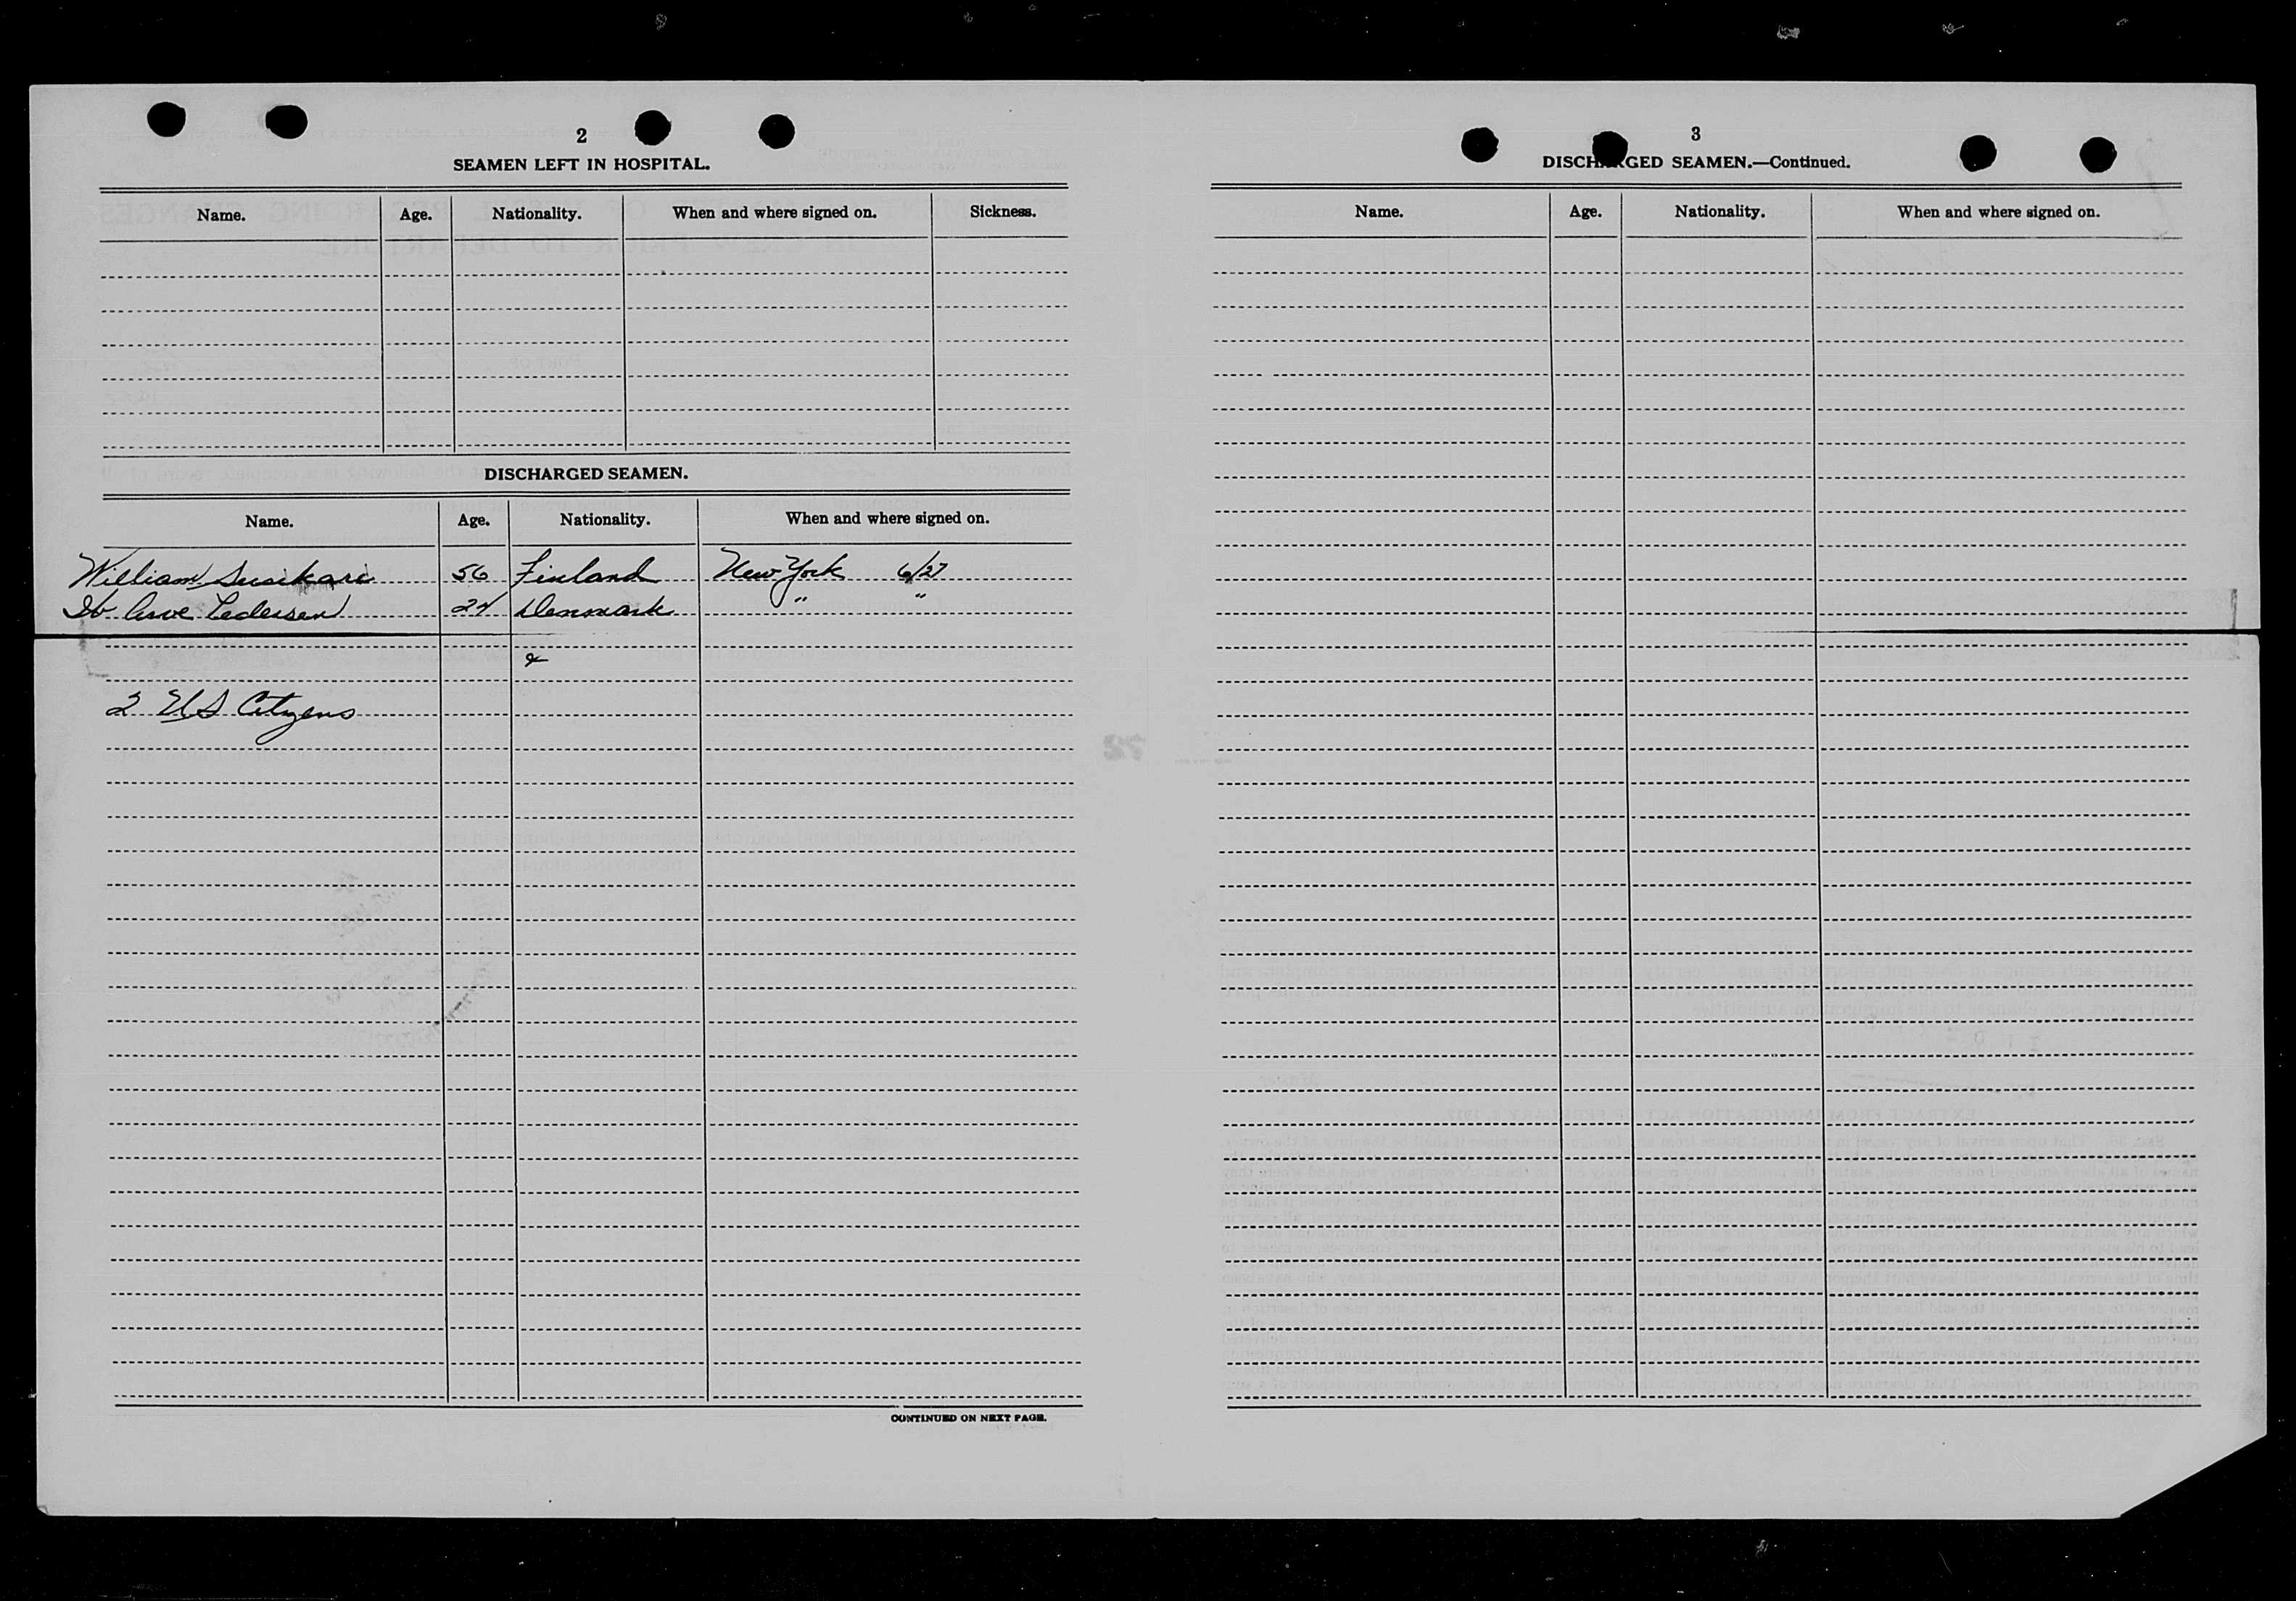 2
SEAMEN LEFT IN HOSPITAL.
Name. Age. Nationality. When and where signed on. Sickness.
DISCHARGED SEAMEN.
Name. Age. Nationality. When and where signed on.
William Susikari 56 Finland New York 6/27
Ib Pedersen 24 Denmark " "
&
2 US Citizens
CONTINUED ON NEXT PAGE.
3
DISCHARGED SEAMEN.—Continued.
Name. Age. Nationality. When and where signed on.